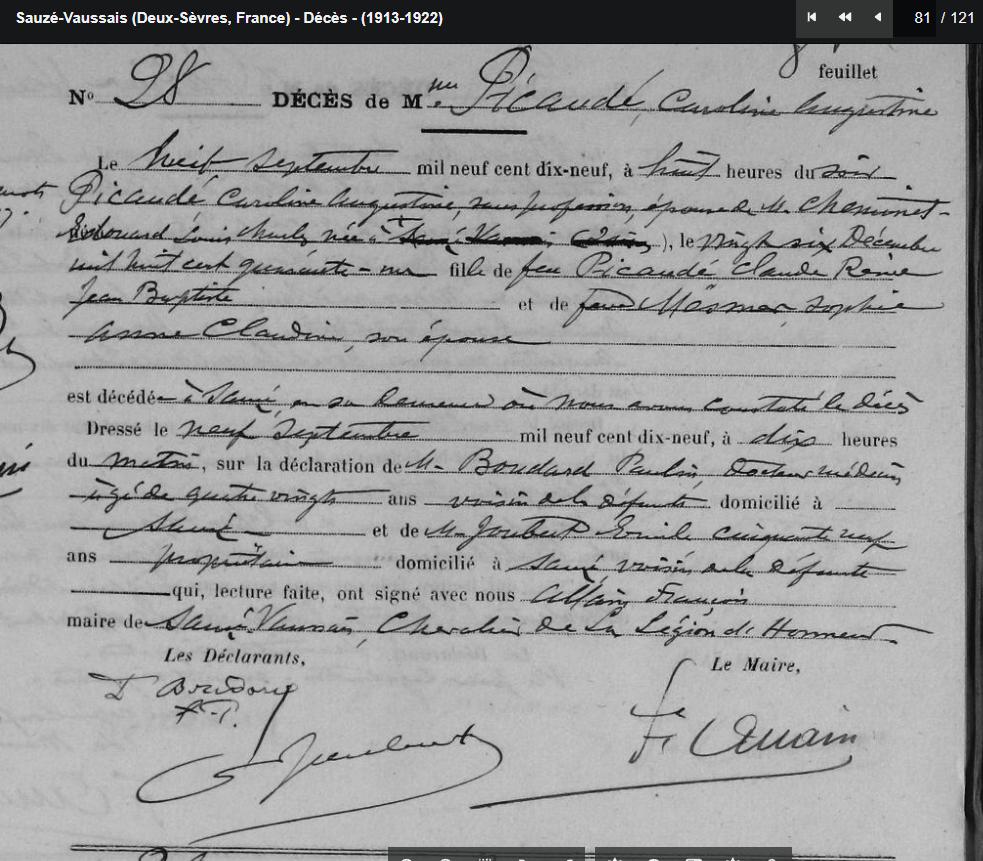 Sauzé-Vaussais (Deux-Sèvres, France) - Décès - (1913-1922)
81 / 121
feuillet
N° 28 DÉCÈS de Mme Picaudé, Caroline Augustine
Le huit septembre mil neuf cent dix-neuf, à huit heures du soir
Picaudé Caroline Augustine, sans profession, épouse de M. Cheminet
Edouard Louis Charles née à ), le vingt six Décembre
mil huit cent quarante-un fille de feu Picaudé Claude Rémie
Jean Baptiste et de feue Mesmer Sophie
Anne Claudine, son épouse
est décédée à Sauzé, en sa demeure où nous avons constaté le décès
Dressé le neuf Septembre mil neuf cent dix-neuf, à dix heures
du matin, sur la déclaration de M. Boudard Paulin, Docteur médecin
âgé de quatre vingt ans voisin de la défunte domicilié à
Sauzé et de M. Joubert Emile cinquante neuf
ans propriétaire domicilié à Sauzé voisin de la défunte
qui, lecture faite, ont signé avec nous Allain François
maire de Sauzé Vaussais, Chevalier de la Légion d'Honneur
Les Déclarants,
Le Maire,